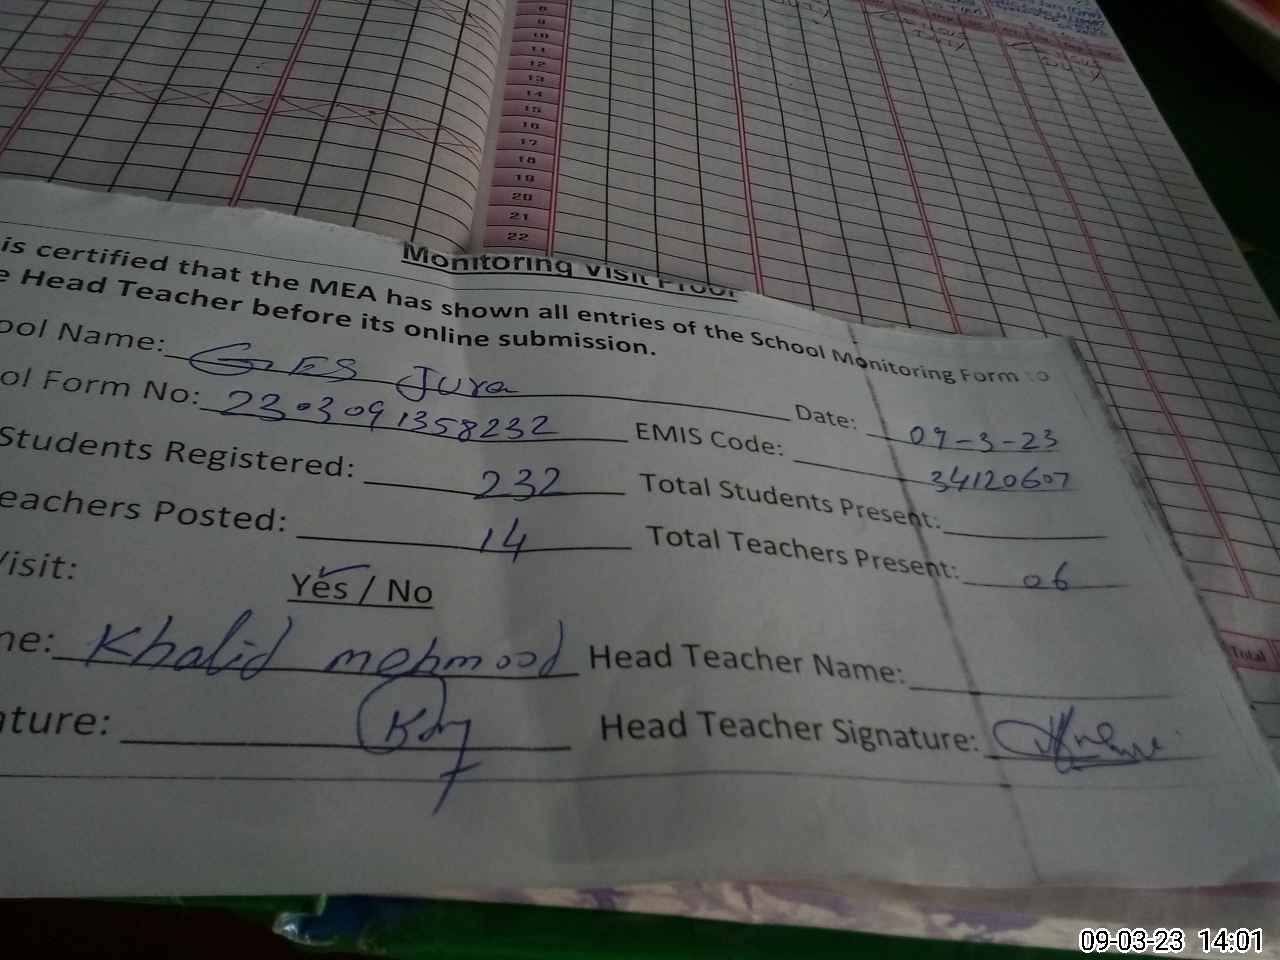 8
9
10
11
12
13
14
15
16
17
18
19
20
21
22
Monitoring Visit Proof
is certified that the MEA has shown all entries of the School Monitoring Form to
e Head Teacher before its online submission.
ool Name: GES Jura Date: 09-3-23
ol Form No: 2303091358232 EMIS Code: 34120607
Students Registered: 232 Total Students Present:
eachers Posted: 14 Total Teachers Present: 06
Visit: Yes / No
me: Khalid mehmood Head Teacher Name:
ature: Head Teacher Signature:
Total
09-03-23 14:01